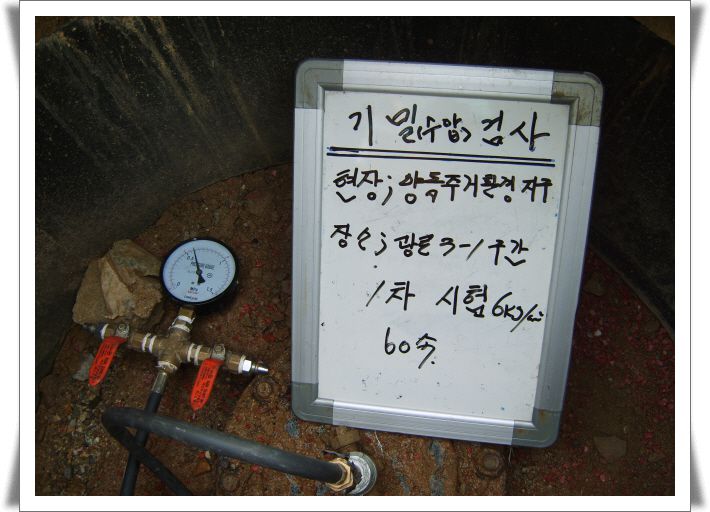 기 밀(수압) 검사
현장; 양동주거환경지구
장소; 광로3-1구간
1차 시험 6kg/㎠
60속